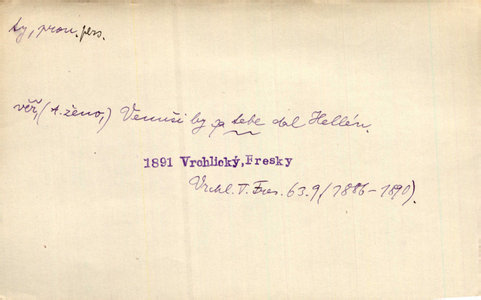 ty, pron. pers.
věř, (t. ženo,) Venuši by za tebe dal Hellén.
1891 Vrchlický, Fresky
Vrchl. V. Fres. 63.9 (1886–1890).